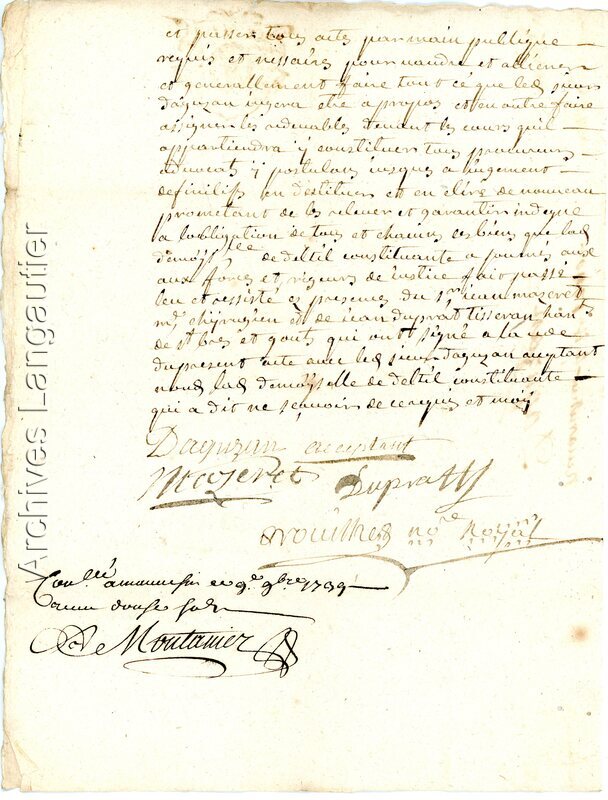 et passer tous actes par main publique
requis et nissaires pour vandre et alliener
et generallement faire tout ce que led sieur
daguzan jugera etre a propos et en outre faire
assigner les redeuables deuant les cours quil
appartiendra y constituer tous procureurs
aduocats y postulans jusques a jugement
definitifs en destituer et en elire de nouveau
prometant de les releuer et garantir indegne
a lobligation de tous et chacuns ces biens que lad
demoyselle de deltil constituante a soumis aux
aux forces et rigueurs de justice fait passé
leu et ressitté ez presences du sr jean mazeret
mtre chyrurgien et de jean duprat tisseran hants
de st bres et gouts qui ont signé a la cede
du present acte auec led sieur daguzan aceptant
non lad demoyselle de deltil constituante
qui a dit ne sçauoir de ce requis et moy
Daguzan acceptant
Mazeret Duprat
no.re Royal
Conllé a ce 9e 9bre 1739
Receu douse sols
De Montanier
Archives Langautier